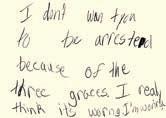 I don't wan you
to be arrestend
because of the
three graces. I realy
think its worng. I'm worng